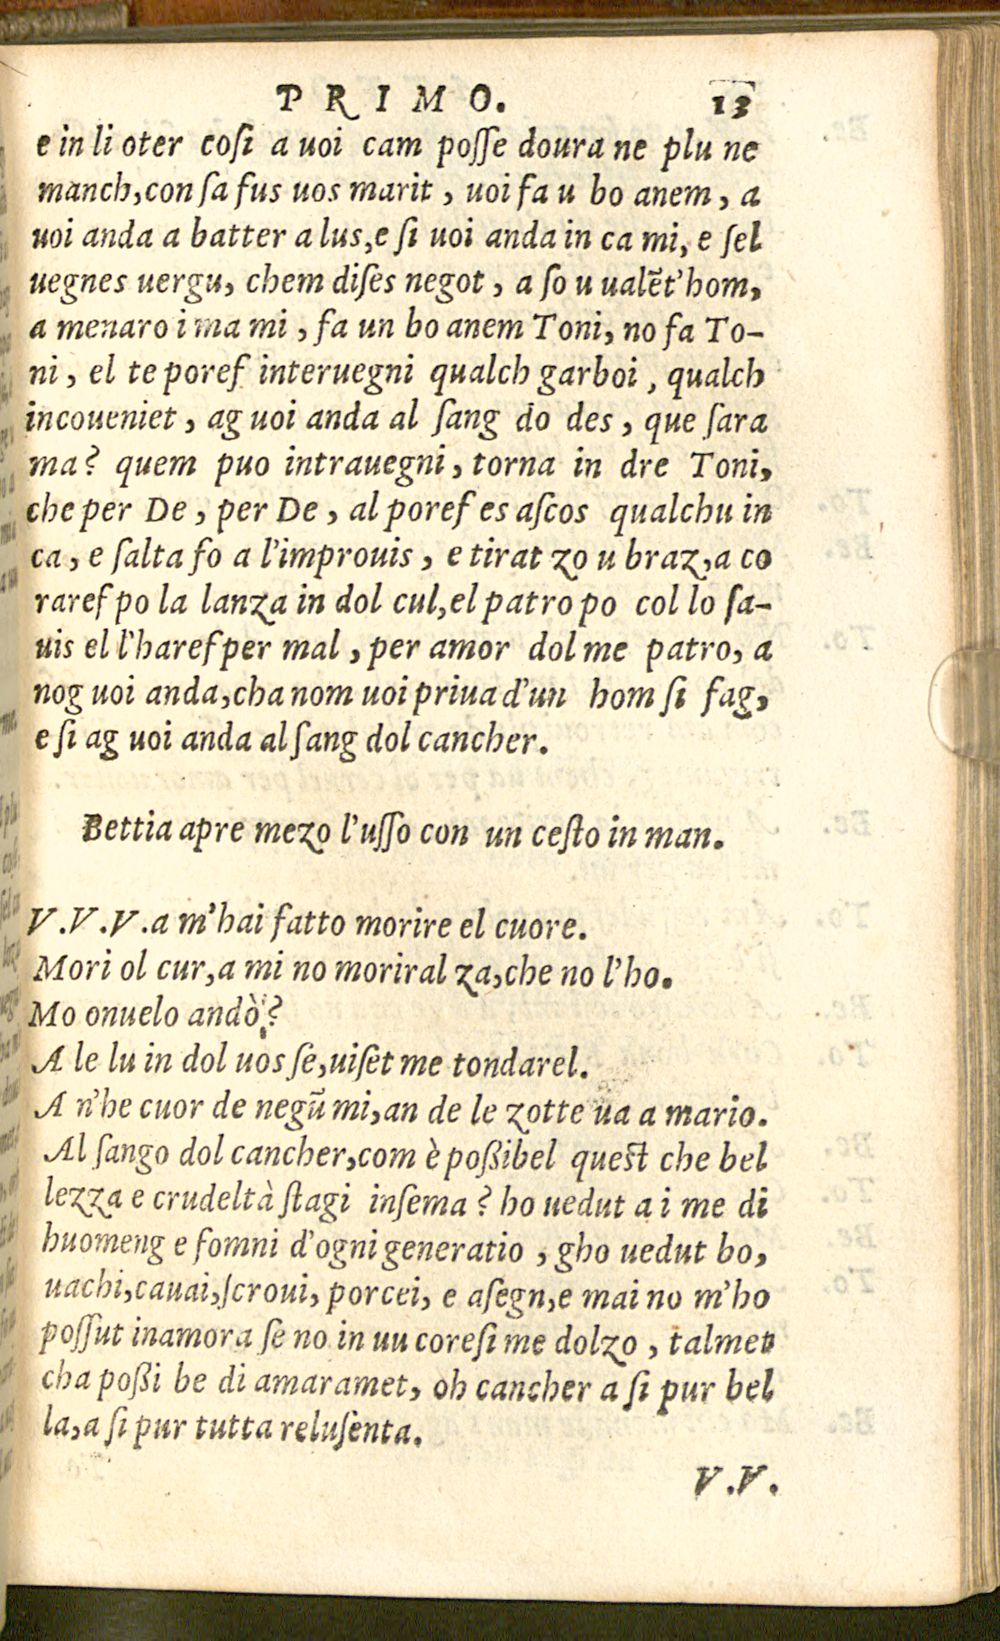 PRIMO. 13
e in li oter coſi a uoi cam poſſe doura ne plu ne
manch, con ſa fus uos marit, uoi fa u bo anem, a
uoi anda a batter a lus, e ſi uoi anda in ca mi, e ſel
uegnes uergu, chem diſes negot, a ſo u ualẽt'hom,
a menaro i ma mi, fa un bo anem Toni, no fa To-
ni, el te poref interuegni qualch garboi, qualch
incoueniet, ag uoi anda al ſang do des, que ſara
ma? quem puo intrauegni, torna in dre Toni,
che per De, per De, al poref es aſcos qualchu in
ca, e ſalta fo a l'improuis, e tirat zo u braz, a co
raref po la lanza in dol cul, el patro po col lo ſa-
uis el l'haref per mal, per amor dol me patro, a
nog uoi anda, cha nom uoi priua d'un hom ſi fag,
e ſi ag uoi anda al ſang dol cancher.
Bettia apre mezo l'uſſo con un ceſto in man.
V.V.V. a m'hai fatto morire el cuore.
Mori ol cur, a mi no moriral za, che no l'ho.
Mo onuelo andò?
A le lu in dol uos ſe, uiſet me tondarel.
A n'he cuor de negũ mi, an de le zotte ua a mario.
Al ſango dol cancher, com è poßibel queſt che bel
lezza e crudeltà ſtagi inſema? ho uedut a i me di
huomeng e fomni d'ogni generatio, gho uedut bo,
uachi, cauai, ſcroui, porcei, e aſegn, e mai no m'ho
poſſut inamora ſe no in uu coreſi me dolzo, talmet
cha poßi be di amaramet, oh cancher a ſi pur bel
la, a ſi pur tutta reluſenta.
V.V.